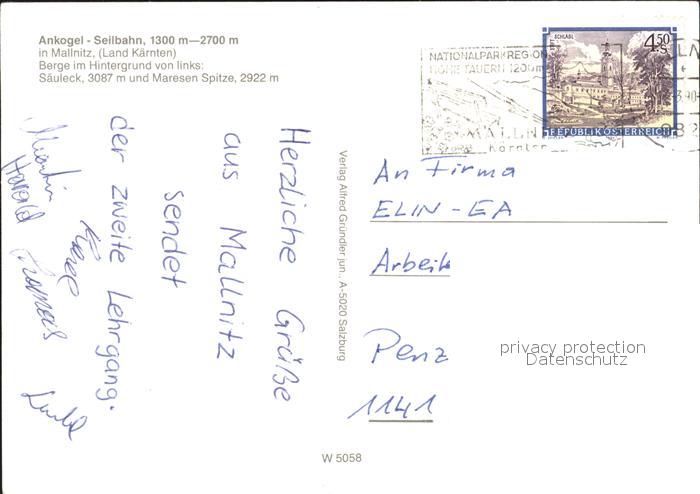 Ankogel - Seilbahn, 1300 m—2700 m
in Mallnitz, (Land Kärnten)
Berge im Hintergrund von links:
Säuleck, 3087 m und Maresen Spitze, 2922 m
Herzliche Grüße
aus Mallnitz
sendet
der zweite Lehrgang.
Martin
Harald
Thomas
Verlag Alfred Gründler jun., A-5020 Salzburg
NATIONALPARKREGION
HOHE TAUERN 1200m
MALLNI
Kärnten
STIFT SCHLÄGL
4.50
S
REPUBLIK ÖSTERREICH
An Firma
ELIN-EA
Arbeit
Penz
1141
privacy protection
Datenschutz
W 5058